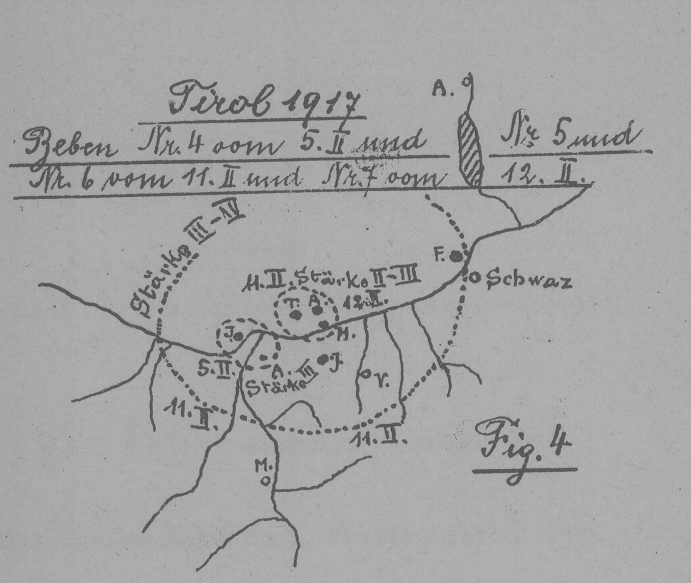 Tirol 1917
Beben Nr. 4 vom 5. II und Nr 5 und
Nr. 6 vom 11. II und Nr. 7 vom 12. II.
A.
Stärke III-IV
F.
Schwaz
11. II. Stärke II-III
12. II.
T. A.
M.
J.
5. II.
A.
Stärke III
J.
V.
11. II.
11. II.
M.
Fig. 4